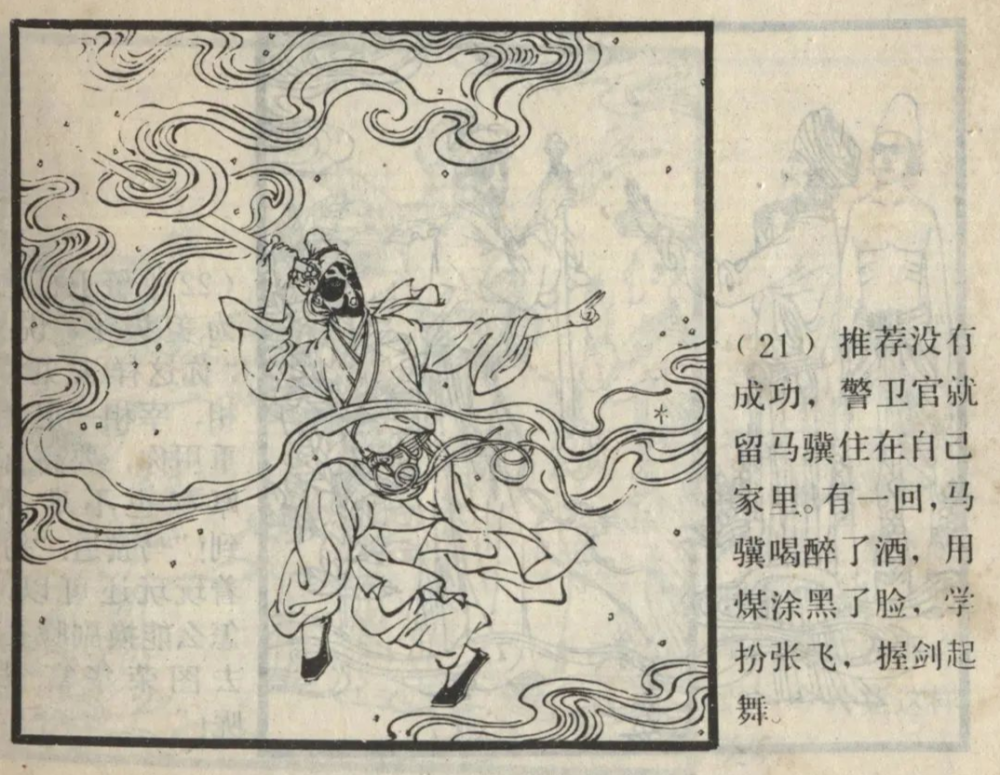 （21）推荐没有
成功，警卫官就
留马骥住在自己
家里。有一回，马
骥喝醉了酒，用
煤涂黑了脸，学
扮张飞，握剑起
舞。